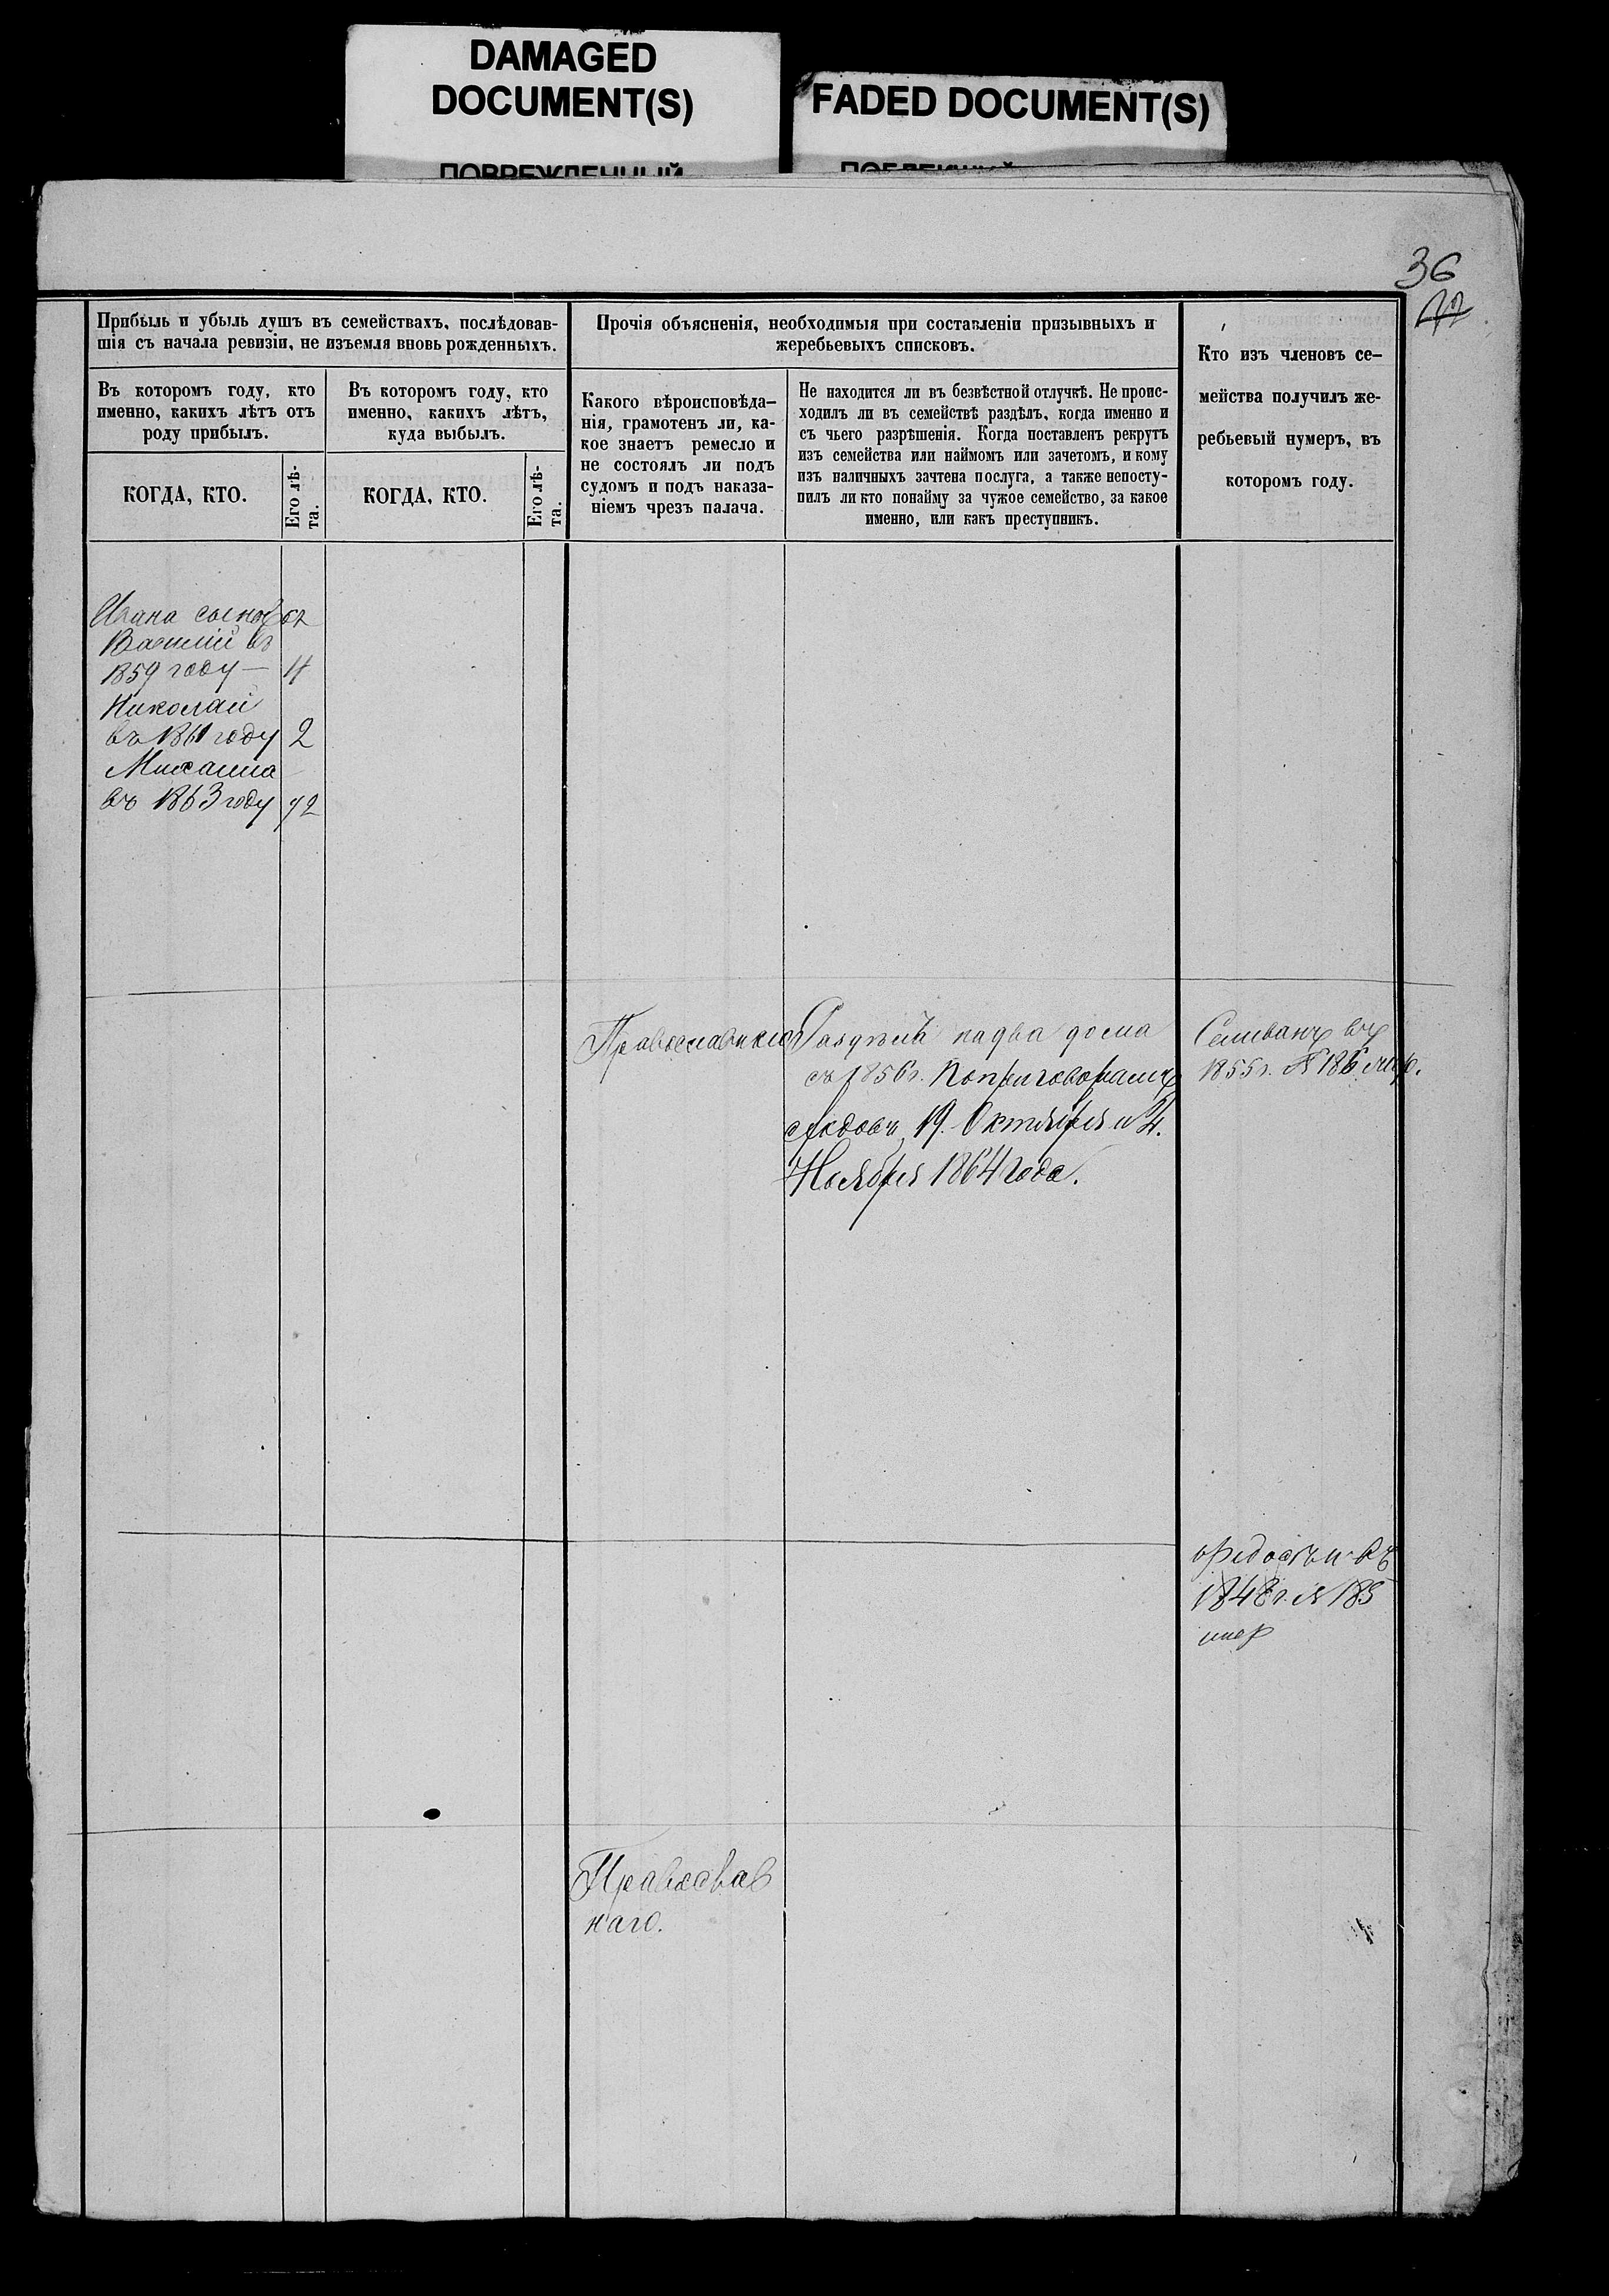 DAMAGED
DOCUMENT(S)
FADED DOCUMENT(S)
ПОВРЕЖДЕННЫЙ
ПОБЛЕКШИЙ
36
77
Прибыль и убыль душъ въ семействахъ, послѣдовав-
шія съ начала ревизіи, не изъемля вновь рожденныхъ.
Въ которомъ году, кто
именно, какихъ лѣтъ отъ
роду прибылъ.
КОГДА, КТО.
Его лѣ-
та.
Въ которомъ году, кто
именно, какихъ лѣтъ,
куда выбылъ.
КОГДА, КТО.
Его лѣ-
та.
Прочія объясненія, необходимыя при составленіи призывныхъ и
жеребьевыхъ списковъ.
Какого вѣроисповѣда-
нія, грамотенъ ли, ка-
кое знаетъ ремесло и
не состоялъ ли подъ
судомъ и подъ наказа-
ніемъ чрезъ палача.
Не находится ли въ безвѣстной отлучкѣ. Не проис-
ходилъ ли въ семействѣ раздѣлъ, когда именно и
съ чьего разрѣшенія. Когда поставленъ рекрутъ
изъ семейства или наймомъ или зачетомъ, и кому
изъ наличныхъ зачтена послуга, а также непосту-
пилъ ли кто понайму за чужое семейство, за какое
именно, или какъ преступникъ.
Кто изъ членовъ се-
мейства получилъ же-
ребьевый нумеръ, въ
которомъ году.
Ивана сынов
Василій въ
1859 году — 4
Николай
въ 1861 году 2
Михаила
въ 1863 году 1/2
Раздѣлъ на два дома
съ 1856 г. По приговорамъ
сходовъ 19. Октября и 4.
Ноября 1864 года.
Селиванъ въ
1855 г. № 186
въ
1848 г. № 185
Православ
наго.